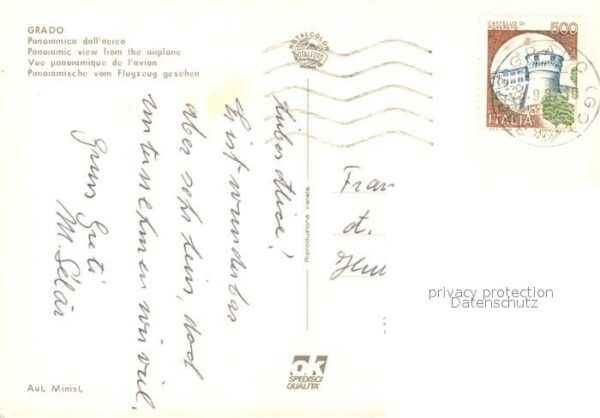 GRADO
Panoramica dall'aereo
Panoramic view from the airplane
Vue panoramique de l'avion
Panoramische vom Flugzeug gesehen
ROTALCOLOR
ROTALFOTO
CASTELLO DI
ROVERETO
500
ITALIA
GRADO (GO)
Es ist wunderbar
aber sehr heiss, doch
unternehmen wir viel.
Gruss Greti
M.
Riproduzione vietata
Fran
d.
privacy protection
Datenschutz
ok
SPEDISCI
QUALITÀ
Aut. Minist.